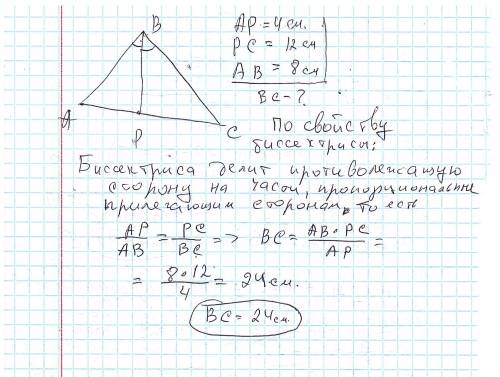 B
A
P
C
AP = 4 см.
PC = 12 см
AB = 8 см
BC - ?
По свойству
биссектрисы:
Биссектриса делит противолежащую
сторону на части, пропорциональные
прилегающим сторонам, то есть
AP/AB = PC/BC => BC = AB · PC/AP =
= 8 · 12/4 = 24 см.
BC = 24 см.